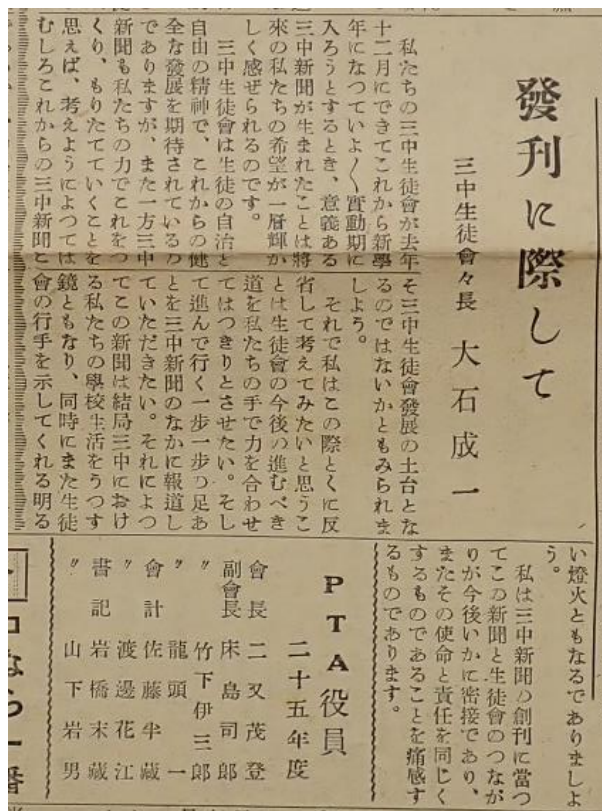 發刊に際して
三中生徒會々長　大石成一
私たちの三中生徒會が去年
十二月にできてこれから新學
年になつていよ〱實動期に
入ろうとするとき、意義ある
三中新聞が生まれたことは將
來の私たちの希望が一層輝か
しく感ぜられるのです。
三中生徒會は生徒の自治と
自由の精神で、これからの健
全な發展を期待されているの
でありますが、また一方三中
新聞も私たちの力でこれをつ
くり、もりたてていくことを
思えば、考えようによつては
むしろこれからの三中新聞こ
そ三中生徒會發展の土台とな
るのではないかともみられま
しよう。
それで私はこの際とくに反
省して考えてみたいと思うこ
とは生徒會の今後の進むべき
道を私たちの手で力を合わせ
てはつきりとさせたい。そし
て進んで行く一步一步の足あ
とを三中新聞のなかに報道し
ていただきたい。それによつ
てこの新聞は結局三中におけ
る私たちの學校生活をうつす
鏡ともなり、同時にまた生徒
會の行手を示してくれる明る
い燈火ともなるでありましよ
う。
私は三中新聞の創刊に當つ
てこの新聞と生徒會のつなが
りが今後いかに密接であり、
またその使命と責任を同じく
するものであることを痛感す
るものであります。
PTA役員
二十五年度
會長　二又茂登
副會長　床島司郎
〃　竹下伊三郎
〃　龍頭一
會計　佐藤半藏
〃　渡邊花江
書記　岩橋末藏
〃　山下岩男